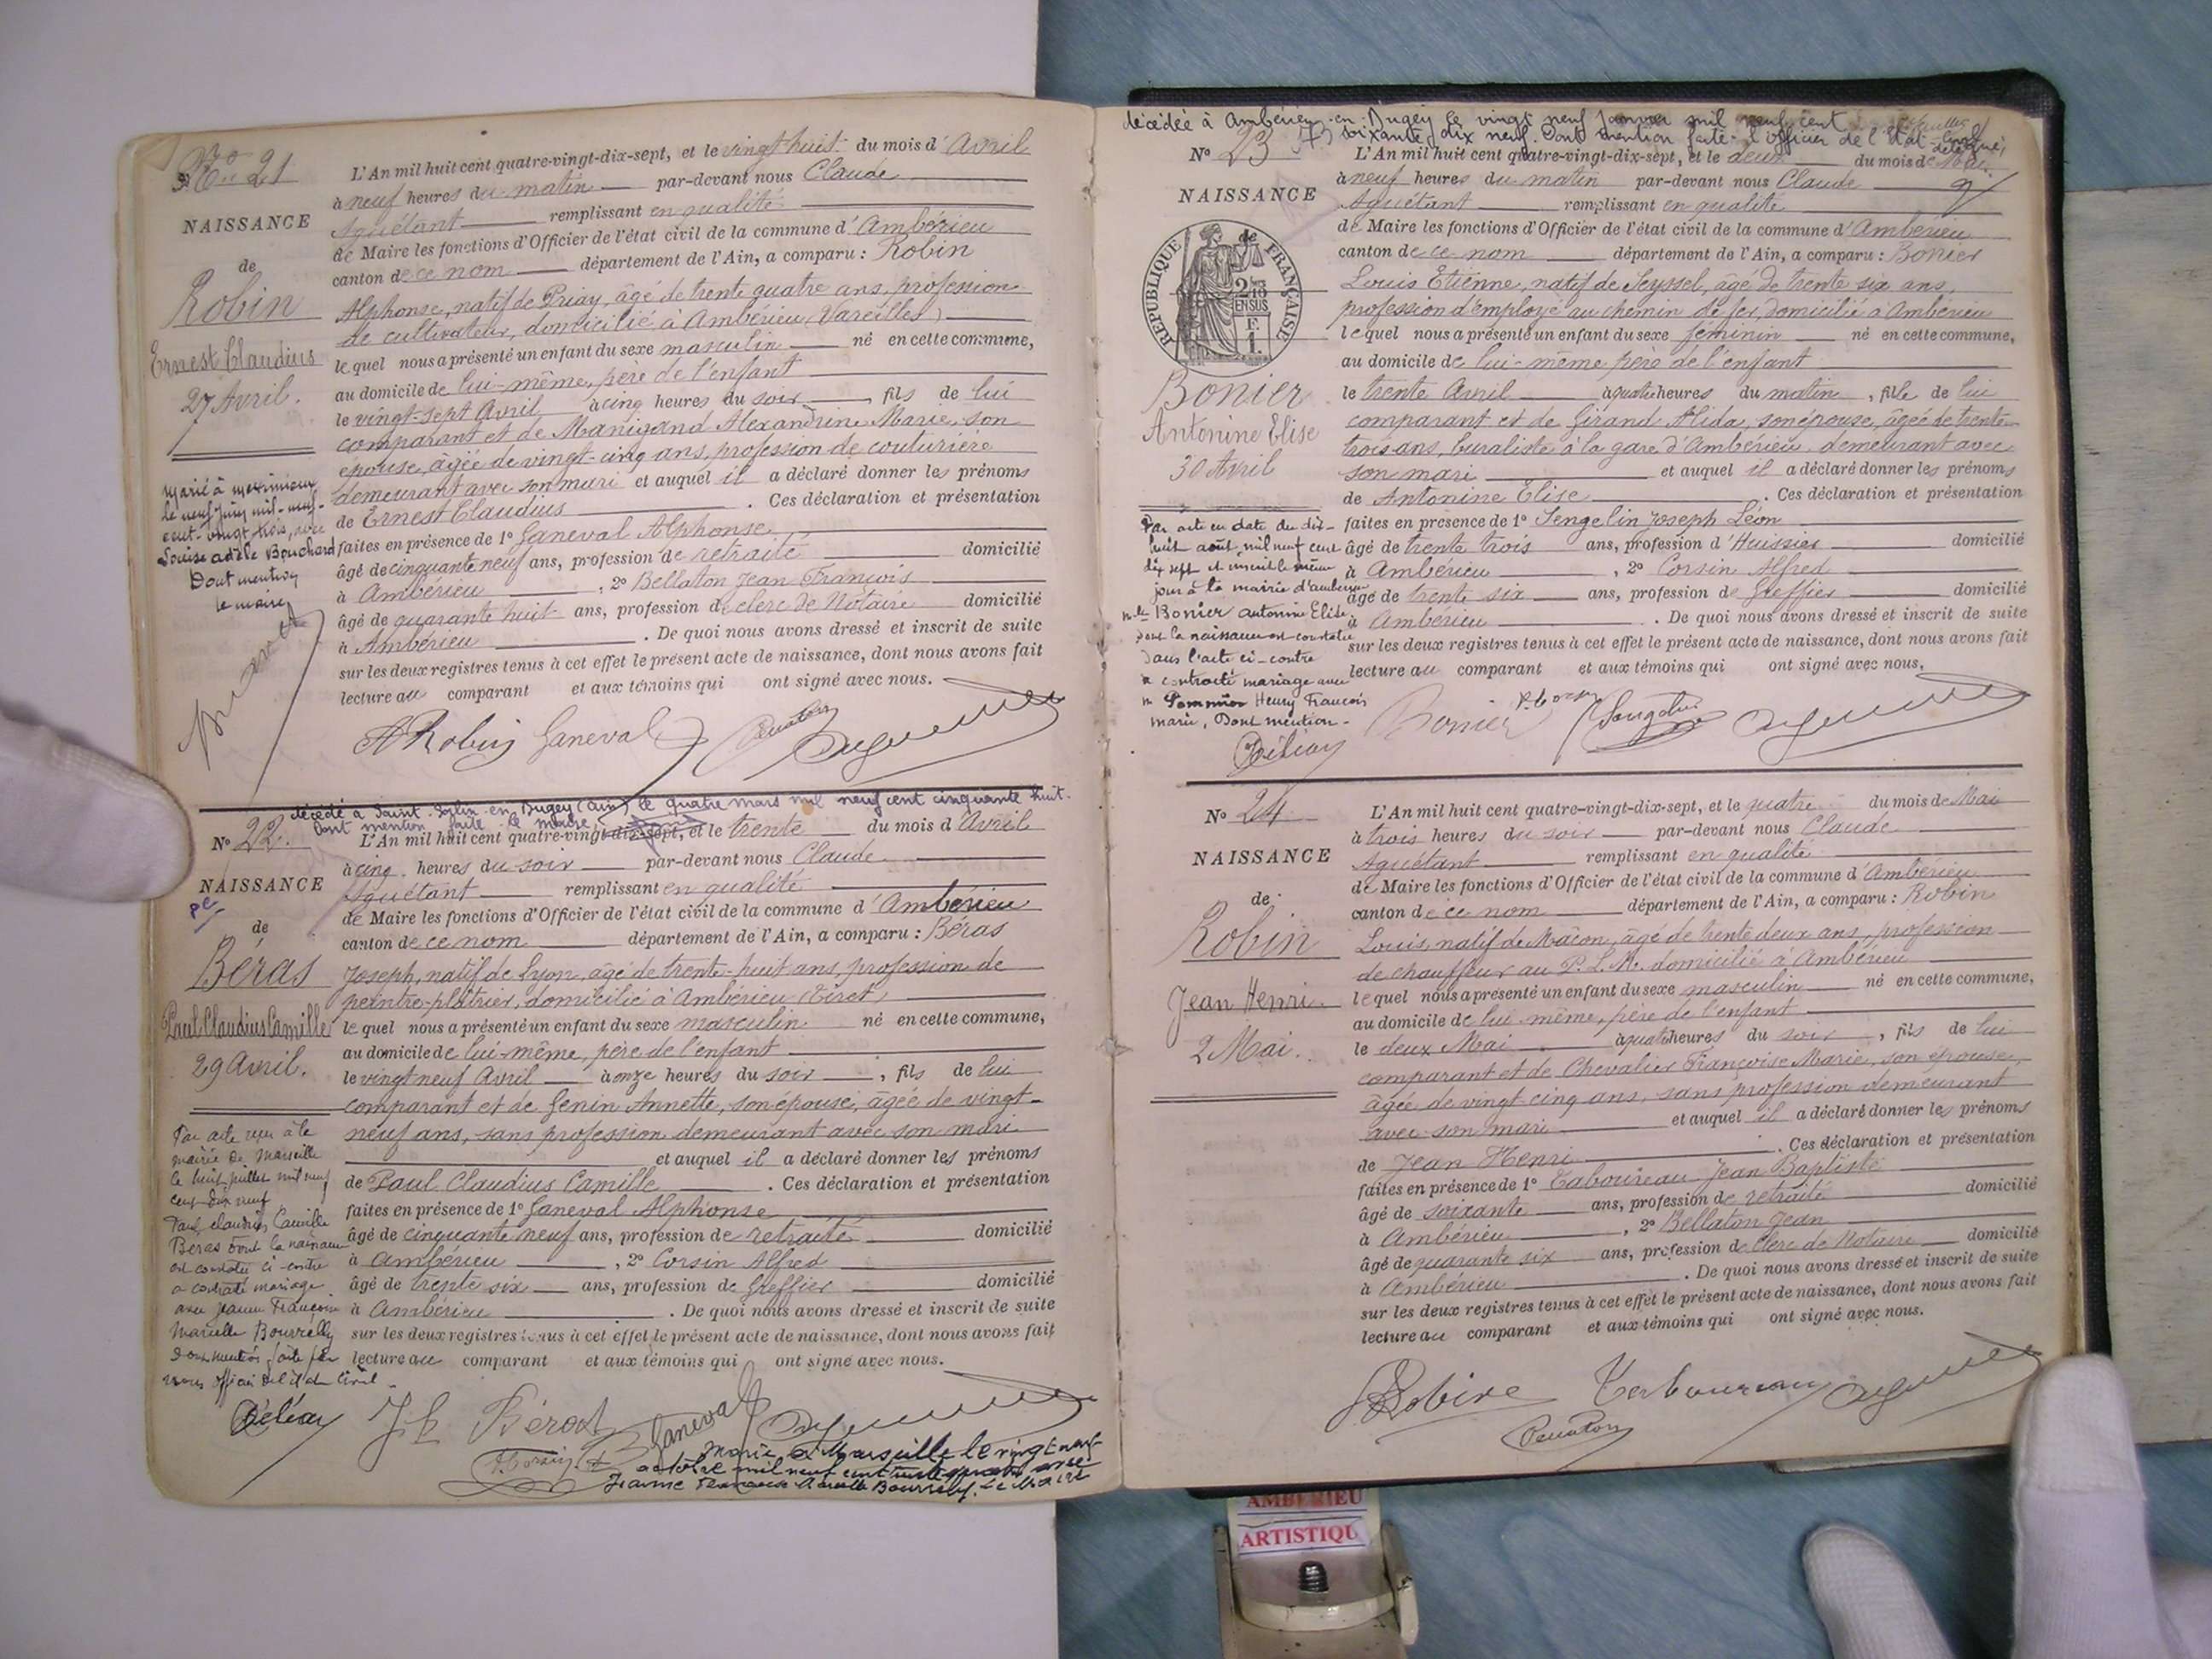 No 21
NAISSANCE
de
Robin
Ernest Claudius
27 Avril.
marié à meximieux
le neuf juin mil-neuf-
cent-vingt trois, avec
Louise adèle Bouchard
Dont mention
le maire
L'An mil huit cent quatre-vingt-dix-sept, et le vingt huit du mois d'Avril
à neuf heures du matin par-devant nous Claude
Aguétant remplissant en qualité
de Maire les fonctions d'Officier de l'état civil de la commune d'Ambérieu
canton de ce nom département de l'Ain, a comparu : Robin
Alphonse, natif de Priay, âgé de trente quatre ans, profession
de cultivateur, domicilié à Ambérieu (Vareilles)
lequel nous a présenté un enfant du sexe masculin né en cette commune,
au domicile de lui-même, père de l'enfant
le vingt-sept Avril à cinq heures du soir, fils de lui
comparant et de Manigand Alexandrine Marie, son
épouse, âgée de vingt-cinq ans, profession de couturière
demeurant avec son mari et auquel il a déclaré donner les prénoms
de Ernest Claudius. Ces déclaration et présentation
faites en présence de 1o Ganeval Alphonse
âgé de cinquante neuf ans, profession de retraité domicilié
à Ambérieu, 2o Bellaton Jean François
âgé de quarante huit ans, profession de clerc de Notaire domicilié
à Ambérieu. De quoi nous avons dressé et inscrit de suite
sur les deux registres tenus à cet effet le présent acte de naissance, dont nous avons fait
lecture au comparant et aux témoins qui ont signé avec nous.
A Robin Ganeval
décédé à Saint-Sorlin-en-Bugey (Ain) le quatre mars mil neuf cent cinquante huit.
Dont mention faite le maire,
No 22.
NAISSANCE
de
Béras
Paul Claudius Camille
29 Avril.
Par acte reçu à la
mairie de Marseille
le huit juillet mil neuf
cent dix neuf
Paul Claudius Camille
Béras dont la naissance
est constatée ci-contre
a contracté mariage
avec Jeanne Françoise
Marcelle Bourrelly
dont mention faite par
nous officier de l'état Civil
L'An mil huit cent quatre-vingt-dix-sept, et le trente du mois d'Avril
à cinq heures du soir par-devant nous Claude
Aguétant remplissant en qualité
de Maire les fonctions d'Officier de l'état civil de la commune d'Ambérieu
canton de ce nom département de l'Ain, a comparu : Béras
Joseph, natif de Lyon, âgé de trente-huit ans, profession de
peintre-plâtrier, domicilié à Ambérieu (Tiret)
lequel nous a présenté un enfant du sexe masculin né en cette commune,
au domicile de lui-même, père de l'enfant
le vingt neuf Avril à onze heures du soir, fils de lui
comparant et de Genin Annette, son épouse, âgée de vingt-
neuf ans, sans profession demeurant avec son mari
et auquel il a déclaré donner les prénoms
de Paul Claudius Camille. Ces déclaration et présentation
faites en présence de 1o Ganeval Alphonse
âgé de cinquante neuf ans, profession de retraité domicilié
à Ambérieu, 2o Corsin Alfred
âgé de trente six ans, profession de Greffier domicilié
à Ambérieu. De quoi nous avons dressé et inscrit de suite
sur les deux registres tenus à cet effet le présent acte de naissance, dont nous avons fait
lecture au comparant et aux témoins qui ont signé avec nous.
Ganeval
Marié à Marseille le vingt neuf
octobre mil neuf cent avec
Jeanne Françoise Marcelle Bourrelly. Le Maire
décédée à Ambérieu-en-Bugey le vingt neuf Janvier mil neuf cent
soixante dix neuf. Dont mention faite. l'officier de l'Etat-Civil délégué,
No 23
NAISSANCE
de
RÉPUBLIQUE FRANÇAISE
2/10
EN SUS
Bonier
Antonine Elise
30 Avril
Par acte en date du dix-
huit août mil neuf cent
dix sept et inscrit le même
jour à la mairie d'ambérieu
melle Bonier antonine Elise
dont la naissance est constatée
dans l'acte ci-contre
a contracté mariage avec
m Pommier Henry François
marie, Dont mention-
L'An mil huit cent quatre-vingt-dix-sept, et le deux du mois de Mai
à neuf heures du matin par-devant nous Claude
Aguétant remplissant en qualité
de Maire les fonctions d'Officier de l'état civil de la commune d'Ambérieu
canton de ce nom département de l'Ain, a comparu : Bonier
Louis Etienne, natif de Seyssel, âgé de trente six ans,
profession d'employé au chemin de fer, domicilié à Ambérieu
lequel nous a présenté un enfant du sexe féminin né en cette commune,
au domicile de lui-même père de l'enfant
le trente Avril à quatre heures du matin, fille de lui
comparant et de Girand Alida, son épouse, âgée de trente-
trois ans, buraliste à la gare d'Ambérieu, demeurant avec
son mari et auquel il a déclaré donner les prénoms
de Antonine Elise. Ces déclaration et présentation
faites en présence de 1o Sengelin Joseph Léon
âgé de trente trois ans, profession d'Huissier domicilié
à Ambérieu, 2o Corsin Alfred
âgé de trente six ans, profession de Greffier domicilié
à Ambérieu. De quoi nous avons dressé et inscrit de suite
sur les deux registres tenus à cet effet le présent acte de naissance, dont nous avons fait
lecture au comparant et aux témoins qui ont signé avec nous.
Bonier
No 24
NAISSANCE
de
Robin
Jean Henri.
2 Mai.
L'An mil huit cent quatre-vingt-dix-sept, et le quatre du mois de Mai
à trois heures du soir par-devant nous Claude
Aguétant remplissant en qualité
de Maire les fonctions d'Officier de l'état civil de la commune d'Ambérieu
canton de ce nom département de l'Ain, a comparu : Robin
Louis, natif de Mâcon, âgé de trente deux ans, profession
de chauffeur au P. L. M. domicilié à Ambérieu
lequel nous a présenté un enfant du sexe masculin né en cette commune,
au domicile de lui même, père de l'enfant
le deux Mai à quatre heures du soir, fils de lui
comparant et de Chevalier Françoise Marie, son épouse,
âgée de vingt cinq ans, sans profession demeurant
avec son mari et auquel il a déclaré donner les prénoms
de Jean Henri. Ces déclaration et présentation
faites en présence de 1o Taboureau Jean Baptiste
âgé de soixante ans, profession de retraité domicilié
à Ambérieu, 2o Bellaton Jean
âgé de quarante six ans, profession de Clerc de Notaire domicilié
à Ambérieu. De quoi nous avons dressé et inscrit de suite
sur les deux registres tenus à cet effet le présent acte de naissance, dont nous avons fait
lecture au comparant et aux témoins qui ont signé avec nous.
AMBERIEU
ARTISTIQU